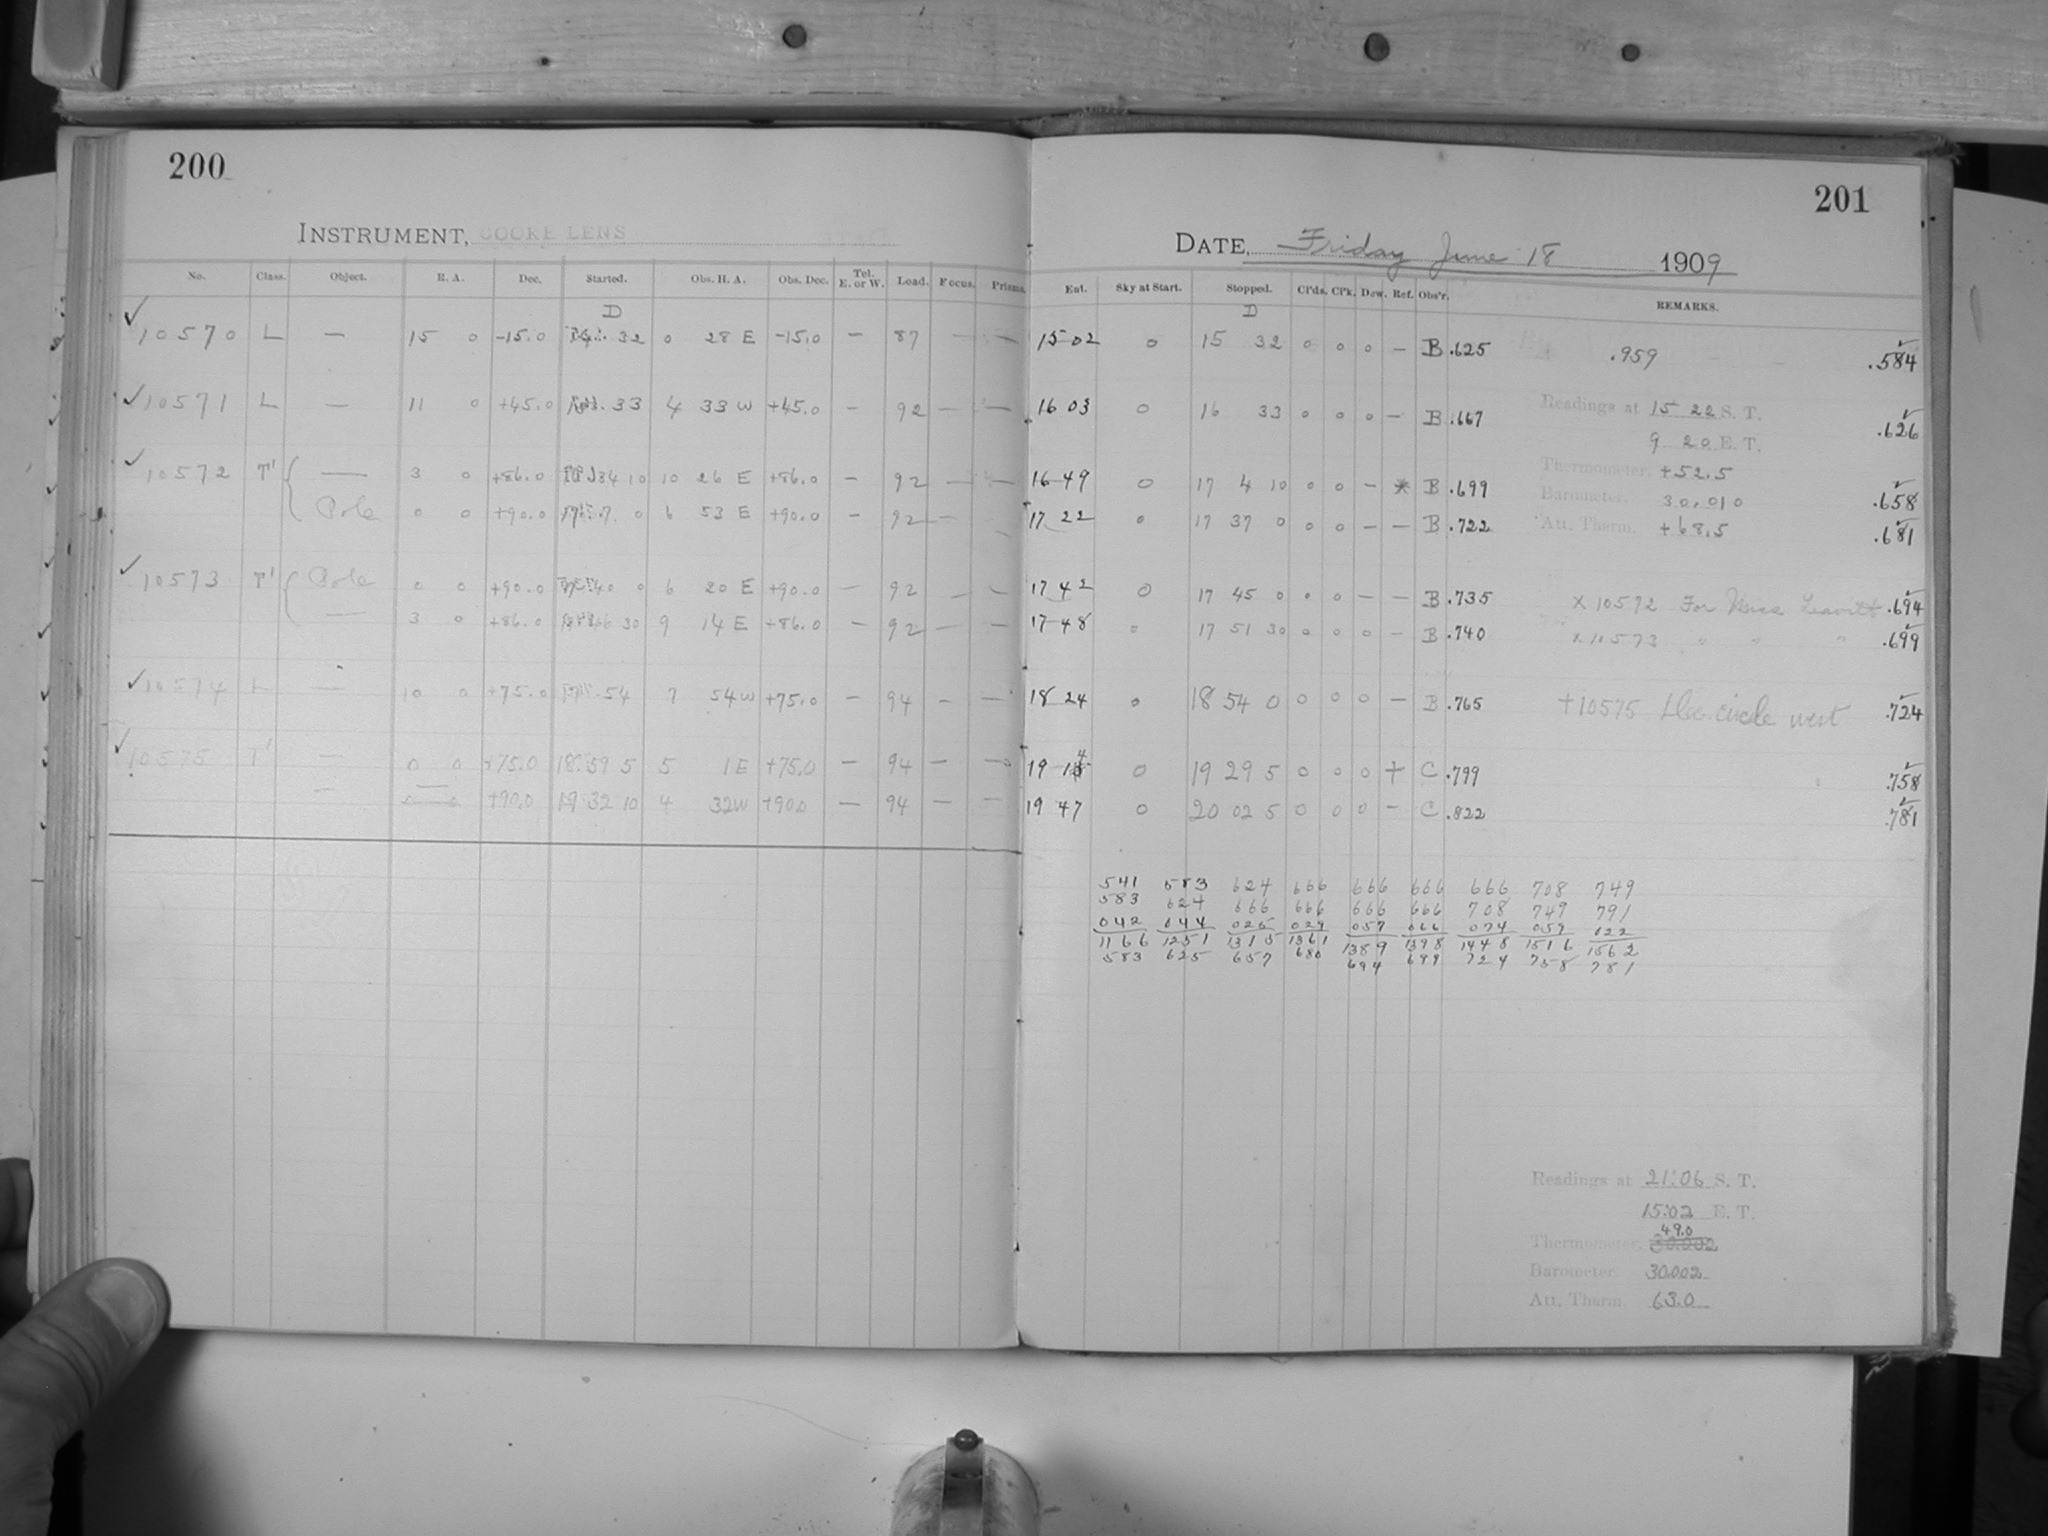 200
INSTRUMENT, COOKE LENS
No. Class. Object. R. A. Dec. Started. Obs. H. A. Obs. Dec. Tel. E. or W. Load. Focus. Prisms.
D
✓ 10570 L — 15 0 -15.0 32 0 28 E -15.0 — 87 — —
✓ 10571 L — 11 0 +45.0 33 4 33 W +45.0 — 92 — —
✓ 10572 T' { — 3 0 +86.0 34 10 10 26 E +86.0 — 92 — —
Pole 0 0 +90.0 7 0 6 53 E +90.0 — 92 —
✓ 10573 T' { Pole 0 0 +90.0 40 0 6 20 E +90.0 — 92 — —
— 3 0 +86.0 46 30 9 14 E +86.0 — 92 — —
✓ 10574 L — 10 0 +75.0 54 7 54 W +75.0 — 94 — —
✓ 10575 T' — 0 0 +75.0 18 59 5 5 1 E +75.0 — 94 — —
— 0 0 +90.0 19 32 10 4 32 W +90.0 — 94 — —
201
DATE, Friday June 18 1909
Ent. Sky at Start. Stopped. Cl'ds. Cl'k. Dew. Ref. Obs'r. REMARKS.
D
15 02 0 15 32 0 0 0 — B .625 .959 .584
16 03 0 16 33 0 0 0 — B .667 Readings at 15 22 S. T. .626
9 20 E. T.
Thermometer. +52.5
16 49 0 17 4 10 0 0 — * B .699 Barometer. 30.010 .658
17 22 0 17 37 0 0 0 — — B .722 Att. Therm. +68.5 .681
17 42 0 17 45 0 0 0 — — B .735 x 10572 For Miss Leavitt .694
17 48 0 17 51 30 0 0 0 — B .740 x 10573 " " " .699
18 24 0 18 54 0 0 0 0 — B .765 +10575 Dec. circle west .724
19 14 0 19 29 5 0 0 0 + C .799 .758
19 47 0 20 02 5 0 0 0 — C .822 .781
541 583 624 666 666 666 666 708 749
583 624 666 666 666 666 708 749 791
042 044 025 029 057 066 074 059 022
1166 1251 1315 1361 1389 1398 1448 1516 1562
583 625 657 680 694 699 724 758 781
Readings at 21:06 S. T.
15:02 E. T.
49.0
Thermometer. 30.002
Barometer. 30.002
Att. Therm. 63.0